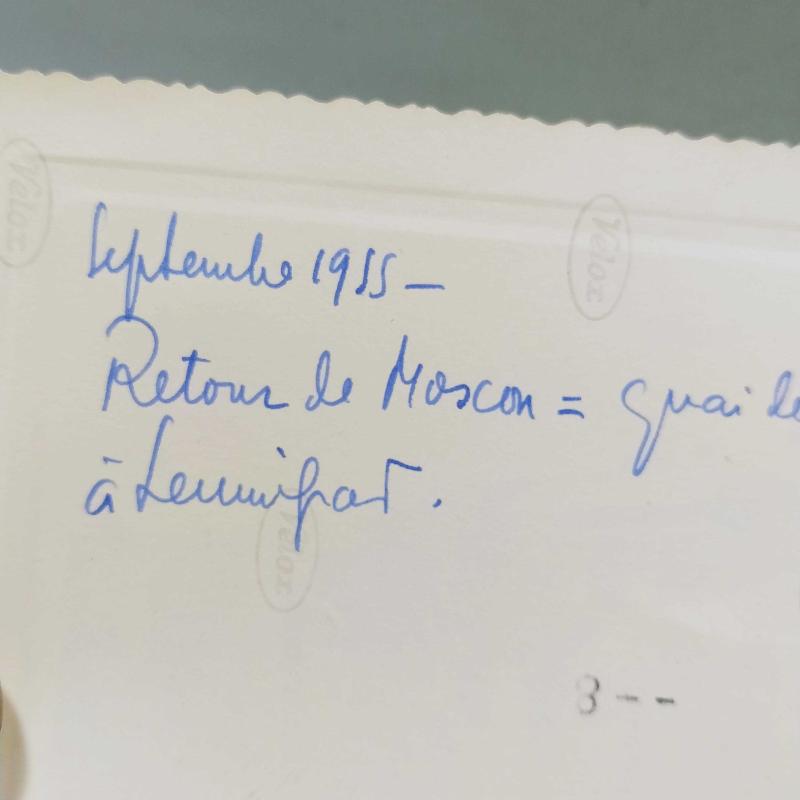 Septembre 1955 -
Retour de Moscou = quai de
à Leningrad.
Velox
Velox
Velox
8--